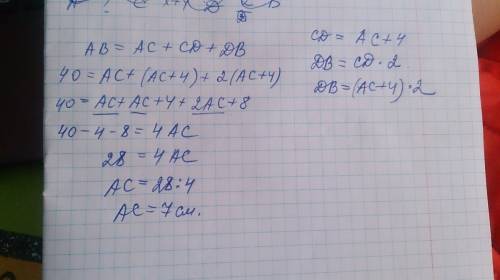 AB = AC + CD + DB
40 = AC + (AC+4) + 2(AC+4)
40 = AC + AC + 4 + 2AC + 8
40 - 4 - 8 = 4 AC
28 = 4 AC
AC = 28 : 4
AC = 7 см.
CD = AC + 4
DB = CD · 2
DB = (AC+4) · 2